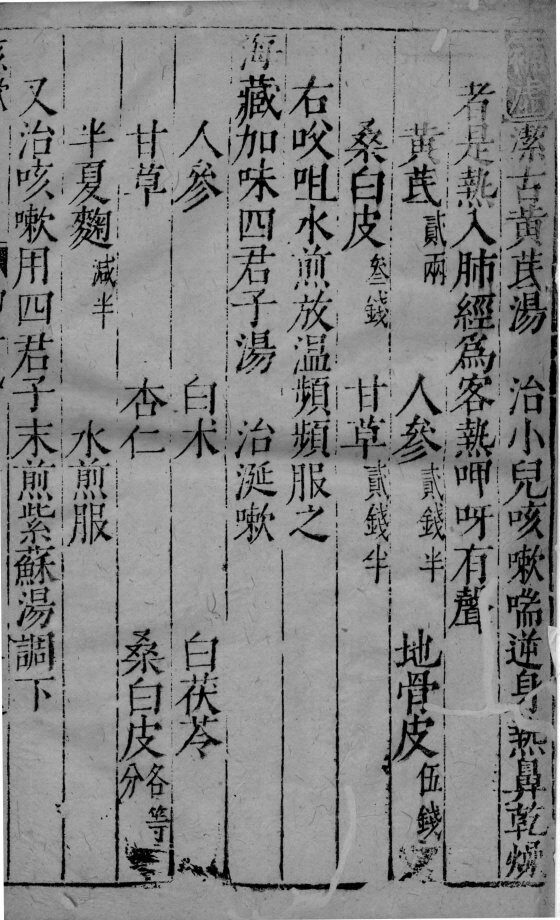 潔古黄芪湯　治小兒咳嗽喘逆身熱鼻乾燥
者是熱入肺經爲客熱呷呀有聲
黄芪貳兩　人參貳錢半　地骨皮伍錢
桑白皮叁錢　甘草貳錢半
右㕮咀水煎放温頻頻服之
海藏加味四君子湯　治涎嗽
人參　白术　白茯苓
甘草　杏仁　桑白皮各等分
半夏麴減半　水煎服
又治咳嗽用四君子末煎紫蘇湯調下